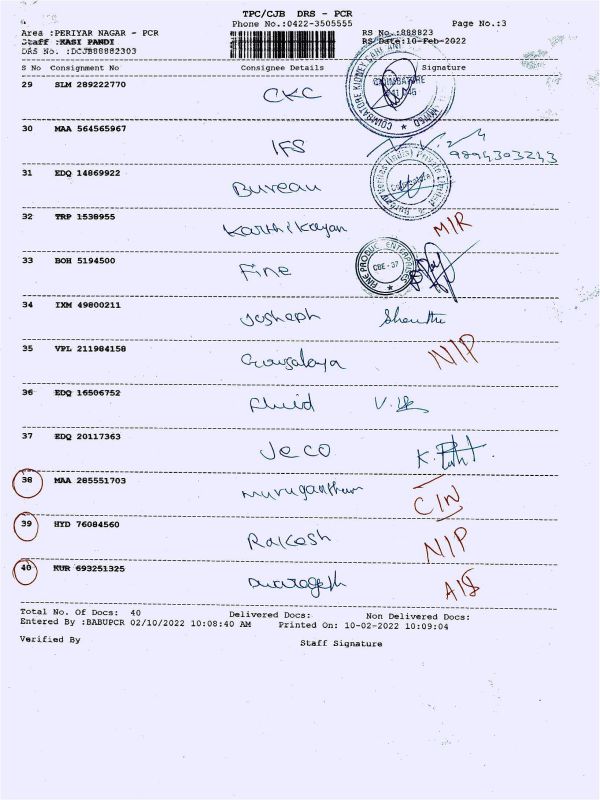 TPC/CJB DRS - PCR
Phone No.:0422-3505555
Page No.:3
Area :PERIYAR NAGAR - PCR
RS No.:888823
Staff :KASI PANDI
RS Date:10-Feb-2022
DRS No. :DCJB88882303
S No Consignment No Consignee Details Signature
29 SLM 289222770 CKC
COIMBATORE
30 MAA 564565967 IFS
9894303243
31 EDQ 14869922 Bureau
Coimbatore
32 TRP 1538955 Karthikayan MIR
33 BOH 5194500 Fine
FINE PRODUC ENTERPRISES
CBE - 37
34 IXM 49800211 Josheph
35 VPL 211984158 NIP
36 EDQ 16506752 Fluid
37 EDQ 20117363 Jeco
38 MAA 285551703 CIN
39 HYD 76084560 Rakesh NIP
40 KUR 693251325
Total No. Of Docs: 40 Delivered Docs: Non Delivered Docs:
Entered By :BABUPCR 02/10/2022 10:08:40 AM Printed On: 10-02-2022 10:09:04
Verified By Staff Signature